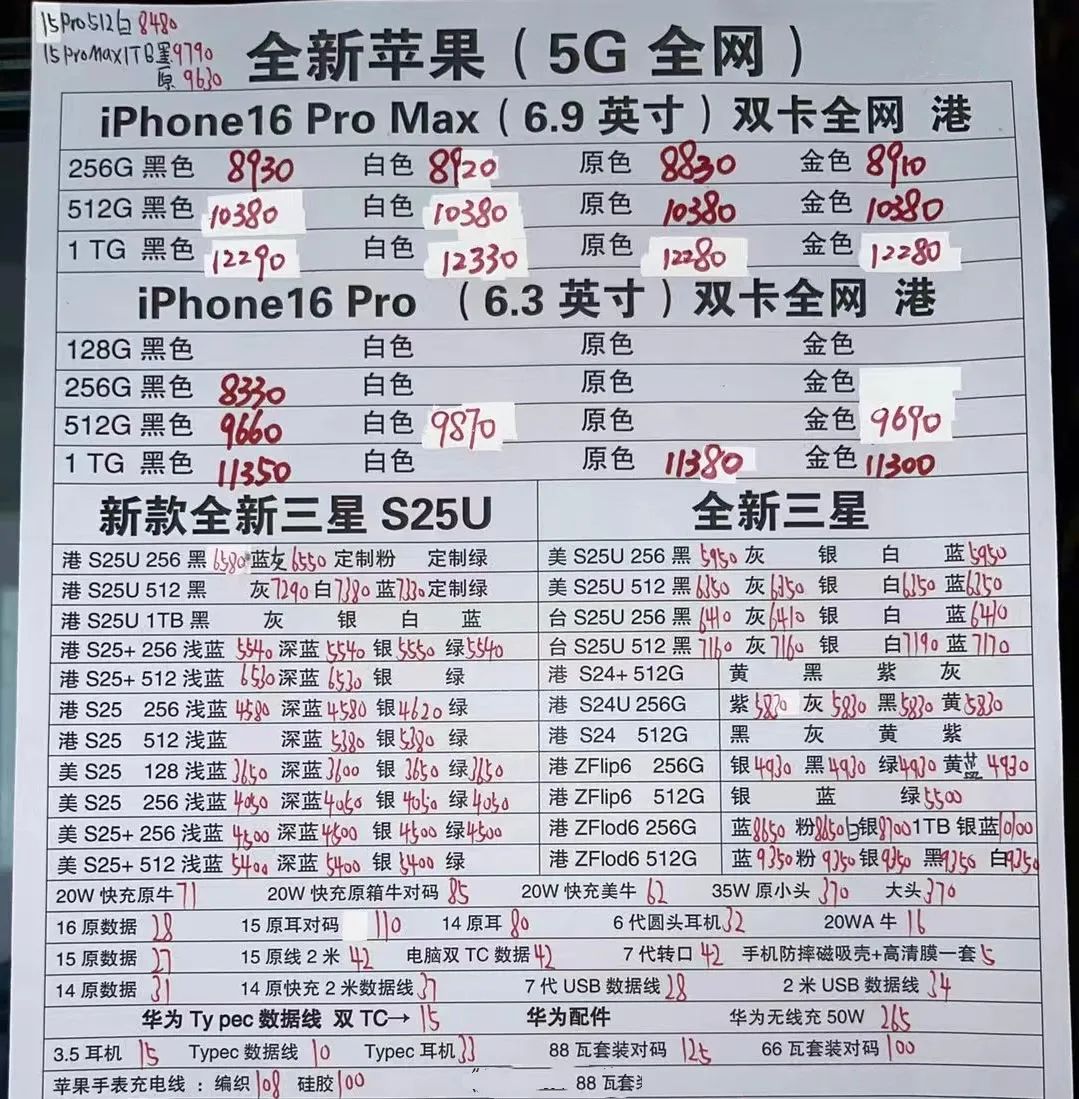 15Pro512白 8480
15ProMax1TB黑9790
原 9630
全新苹果（5G 全网）
iPhone16 Pro Max（6.9 英寸）双卡全网 港
256G 黑色 8930 白色 8920 原色 8830 金色 8910
512G 黑色 10380 白色 10380 原色 10380 金色 10380
1 TG 黑色 12290 白色 12330 原色 12280 金色 12280
iPhone16 Pro （6.3 英寸）双卡全网 港
128G 黑色 白色 原色 金色
256G 黑色 8330 白色 原色 金色
512G 黑色 9660 白色 9870 原色 金色 9690
1 TG 黑色 11350 白色 原色 11380 金色 11300
新款全新三星 S25U
港 S25U 256 黑 6580 蓝灰 6550 定制粉 定制绿
港 S25U 512 黑 灰 7290 白 7380 蓝 7330 定制绿
港 S25U 1TB 黑 灰 银 白 蓝
港 S25+ 256 浅蓝 5540 深蓝 5540 银 5550 绿 5540
港 S25+ 512 浅蓝 6530 深蓝 6530 银 绿
港 S25 256 浅蓝 4580 深蓝 4580 银 4620 绿
港 S25 512 浅蓝 深蓝 5380 银 5380 绿
美 S25 128 浅蓝 3650 深蓝 3600 银 3650 绿 3650
美 S25 256 浅蓝 4050 深蓝 4060 银 4050 绿 4050
美 S25+ 256 浅蓝 4500 深蓝 4600 银 4500 绿 4500
美 S25+ 512 浅蓝 5400 深蓝 5400 银 5400 绿
全新三星
美 S25U 256 黑 5950 灰 银 白 蓝 5950
美 S25U 512 黑 6350 灰 6350 银 白 6350 蓝 6350
台 S25U 256 黑 6410 灰 6410 银 白 蓝 6410
台 S25U 512 黑 7160 灰 7160 银 白 7190 蓝 7170
港 S24+ 512G 黄 黑 紫 灰
港 S24U 256G 紫 5830 灰 5830 黑 5830 黄 5830
港 S24 512G 黑 灰 黄 紫
港 ZFlip6 256G 银 4930 黑 4930 绿 4930 黄蓝 4930
港 ZFlip6 512G 银 蓝 绿 5500
港 ZFlod6 256G 蓝 8650 粉 8650 白银 8700 1TB 银蓝 10100
港 ZFlod6 512G 蓝 9350 粉 9350 银 9350 黑 9350 白 9350
20W 快充原牛 71 20W 快充原箱牛对码 85 20W 快充美牛 62 35W 原小头 370 大头 370
16 原数据 28 15 原耳对码 110 14 原耳 80 6 代圆头耳机 32 20WA 牛 16
15 原数据 27 15 原线 2 米 42 电脑双 TC 数据 42 7 代转口 42 手机防摔磁吸壳+高清膜一套 5
14 原数据 31 14 原快充 2 米数据线 37 7 代 USB 数据线 28 2 米 USB 数据线 34
华为 Ty pec 数据线 双 TC→ 15 华为配件 华为无线充 50W 265
3.5 耳机 15 Typec 数据线 10 Typec 耳机 33 88 瓦套装对码 125 66 瓦套装对码 100
苹果手表充电线：编织 108 硅胶 100 88 瓦套